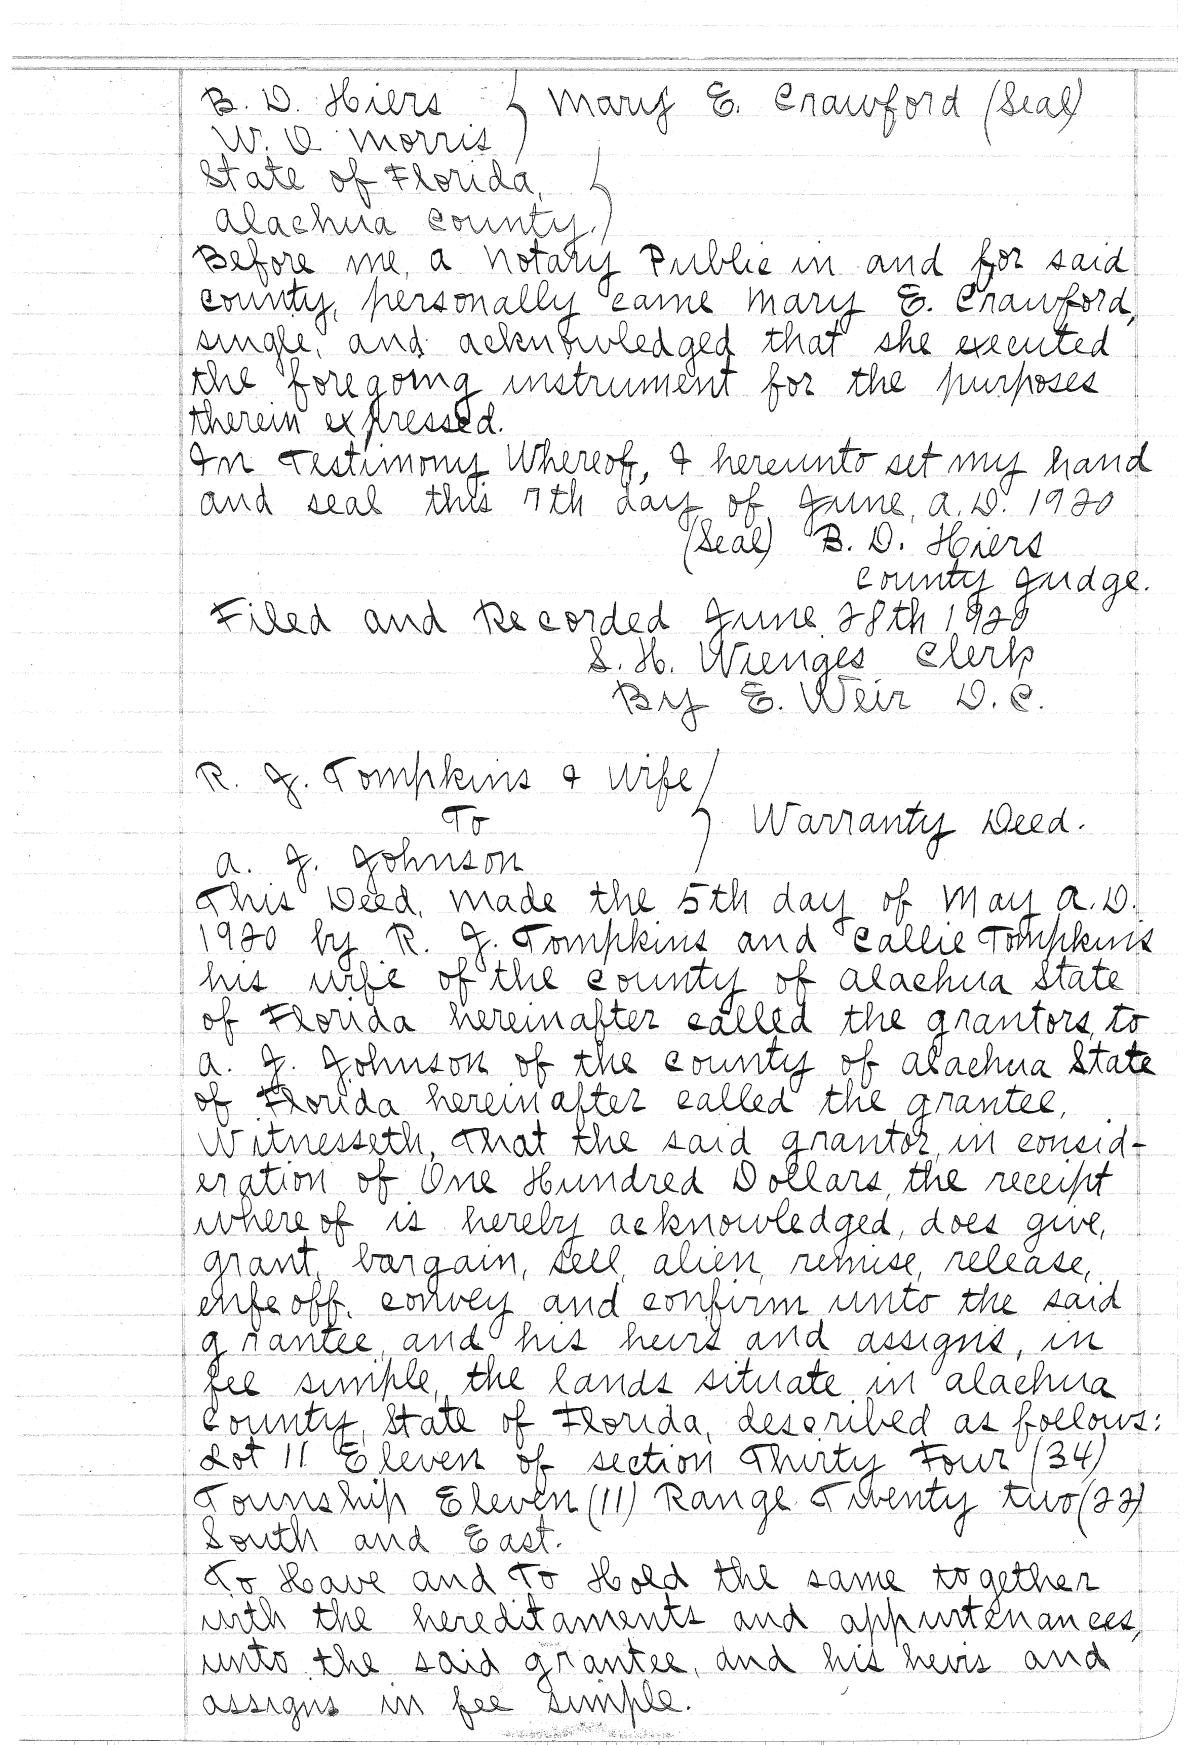 B. D. Hiers } Mary E. Crawford (Seal)
W. O. Morris
State of Florida,
Alachua County. }
Before me, a Notary Public in and for said
County, personally came Mary E. Crawford,
single, and acknowledged that she executed
the foregoing instrument for the purposes
therein expressed.
In Testimony Whereof, I hereunto set my hand
and seal this 7th day of June, A.D. 1920
(Seal) B. D. Hiers
County Judge.
Filed and Recorded June 28th 1920
S. H. Wienges Clerk
By E. Weir D.C.
R. J. Tompkins & Wife
To } Warranty Deed.
A. J. Johnson
This Deed, made the 5th day of May A.D.
1920 by R. J. Tompkins and Callie Tompkins
his wife of the County of Alachua State
of Florida hereinafter called the grantors, to
A. J. Johnson of the County of Alachua State
of Florida hereinafter called the grantee,
Witnesseth, That the said grantor, in consid-
eration of One Hundred Dollars, the receipt
whereof is hereby acknowledged, does give,
grant, bargain, sell, alien, remise, release,
enfeoff, convey and confirm unto the said
grantee, and his heirs and assigns, in
fee simple, the lands situate in Alachua
County, State of Florida, described as follows:
Lot 11 Eleven of section Thirty Four (34)
Township Eleven (11) Range Twenty two (22)
South and East.
To Have and To Hold the same together
with the hereditaments and appurtenances,
unto the said grantee, and his heirs and
assigns in fee simple.